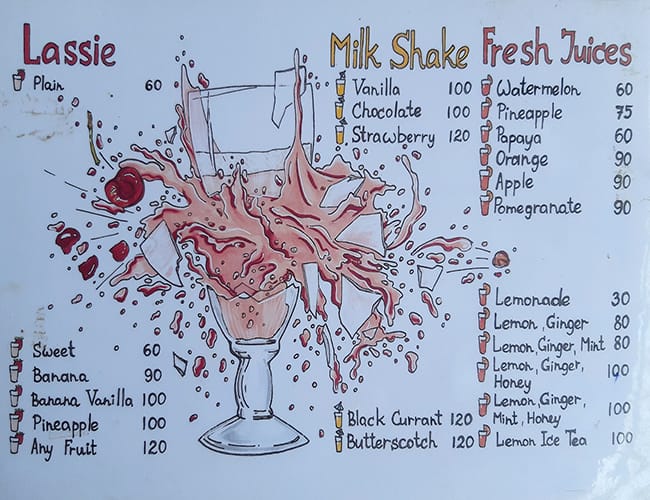 Lassie
Plain 60
Sweet 60
Banana 90
Banana Vanilla 100
Pineapple 100
Any Fruit 120
Milk Shake
Vanilla 100
Chocolate 100
Strawberry 120
Black Currant 120
Butterscotch 120
Fresh Juices
Watermelon 60
Pineapple 75
Papaya 60
Orange 90
Apple 90
Pomegranate 90
Lemonade 30
Lemon, Ginger 80
Lemon, Ginger, Mint 80
Lemon, Ginger, 100
Honey
Lemon, Ginger, 100
Mint, Honey
Lemon Ice Tea 100